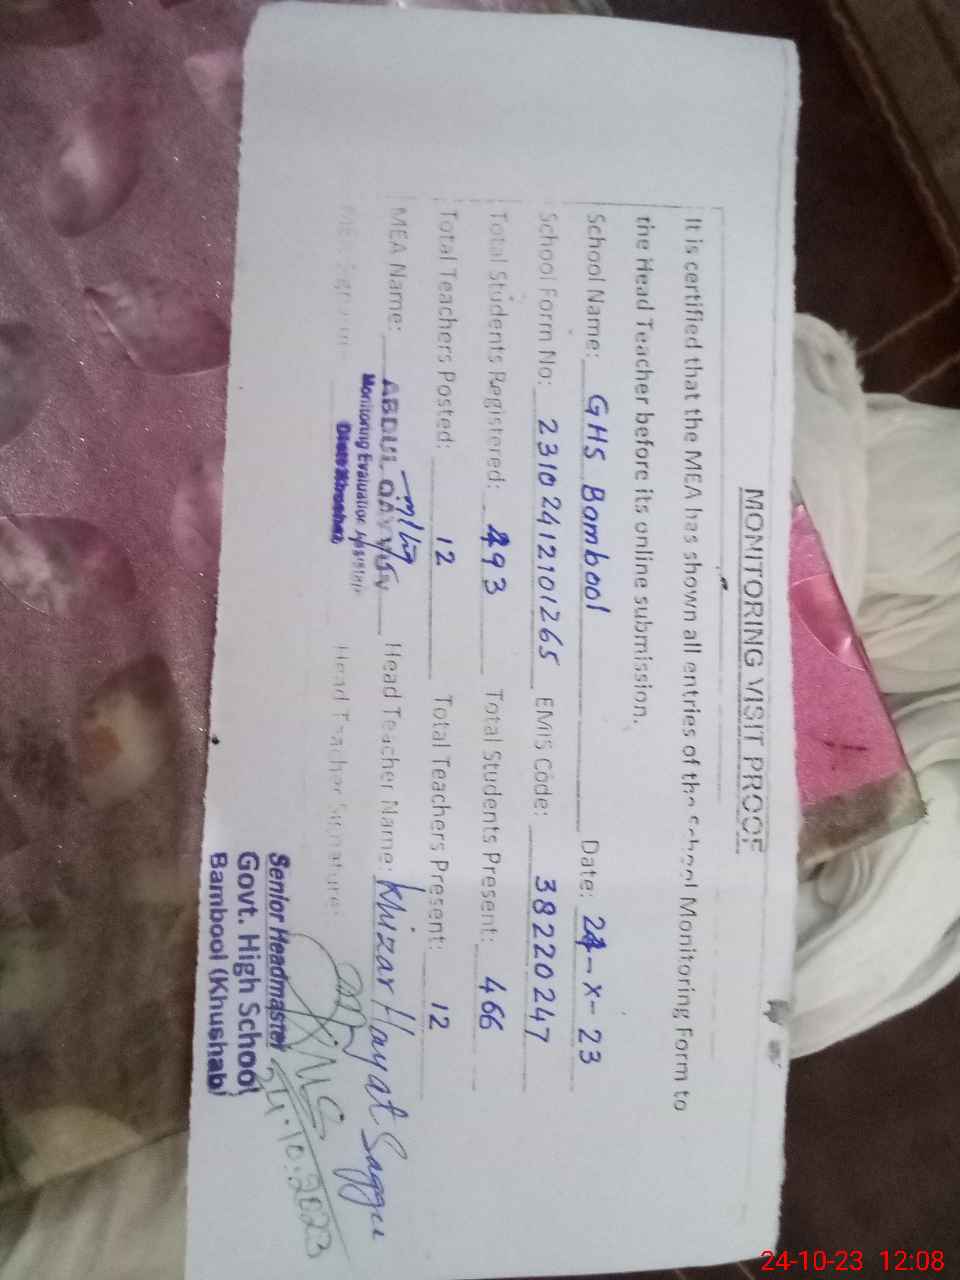 MONITORING VISIT PROOF
It is certified that the MEA has shown all entries of the School Monitoring Form to
the Head Teacher before its online submission.
School Name: GHS Bombool Date: 24-X-23
School Form No: 23102412101265 EMIS Code: 38220247
Total Students Registered: 493 Total Students Present: 466
Total Teachers Posted: 12 Total Teachers Present: 12
MEA Name: ABDUL QAYYUM Head Teacher Name: Khizar Hayat Saggu
Monitoring Evaluation Assistant
Head Teacher Signature:
24.10.2023
Senior Headmaster
Govt. High School
Bambool (Khushab)
24-10-23 12:08